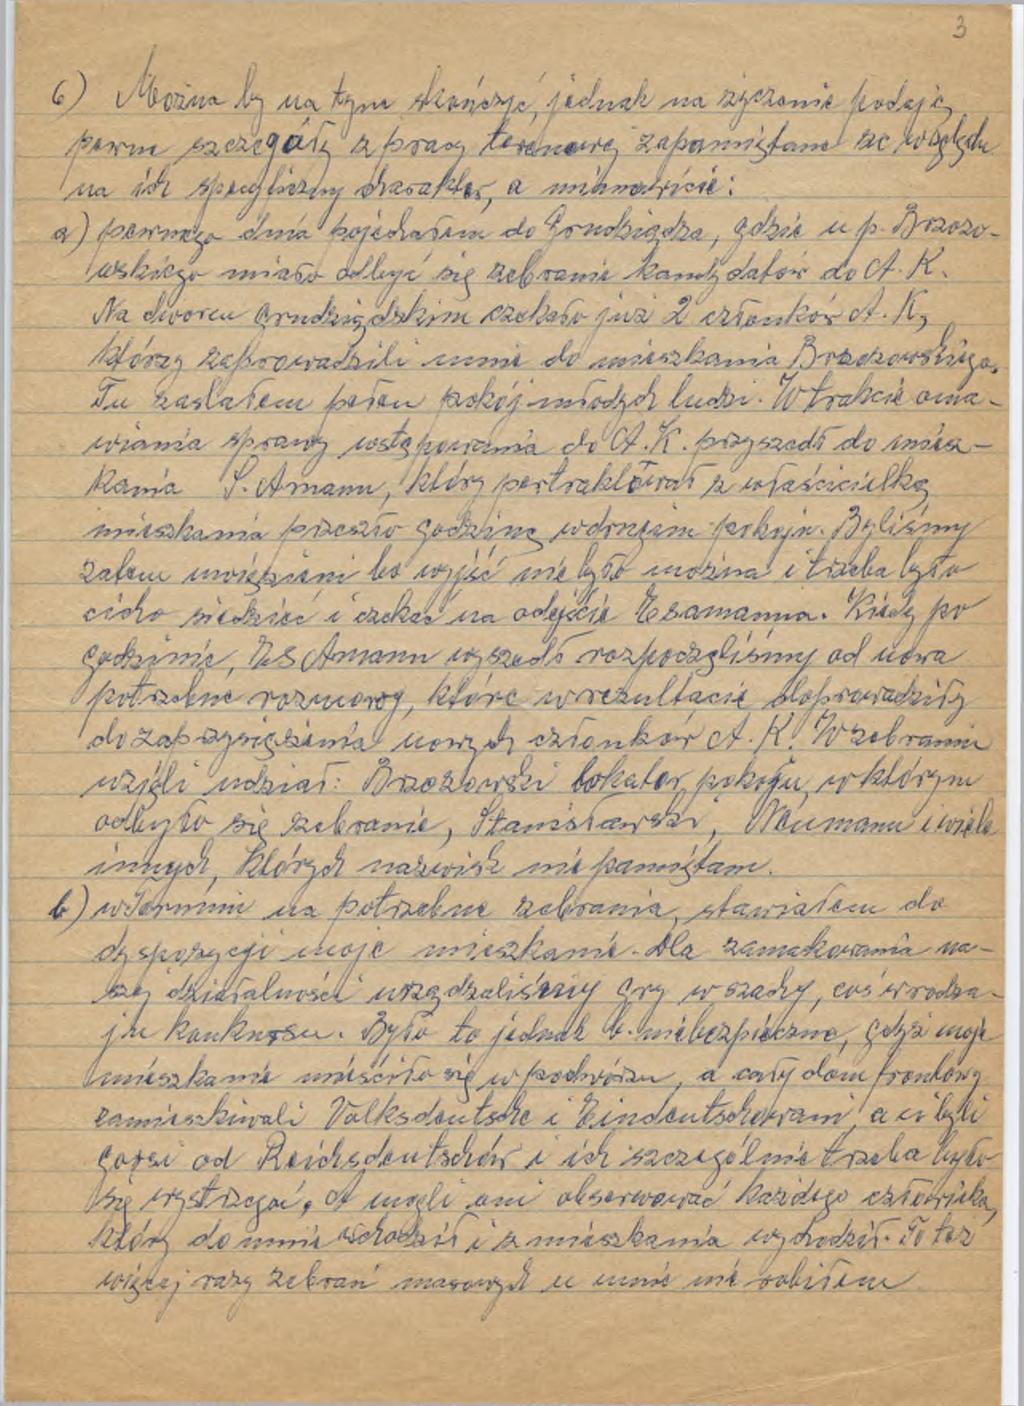 3
6) Można by na tym skończyć, jednak na życzenie podaję
pewne szczegóły z pracy terenowej zapamiętane ze względu
na ich specyficzny charakter, a mianowicie:
a) pewnego dnia pojechałem do Grudziądza, gdzie u p. Brzozo-
wskiego miało odbyć się zebranie kandydatów do A.K.
Na dworcu grudziądzkim czekało już 2 członków A.K,
którzy zaprowadzili mnie do mieszkania Brzozowskiego.
Tu zastałem pełen pokój młodych ludzi. W trakcie oma-
wiania sprawy wstępowania do A.K. przyszedł do miesz-
kania S. Amann, który pertraktował z właścicielką
mieszkania przeszło godzinę w drugim pokoju. Byliśmy
zatem uwięzieni bo wyjść nie było można i trzeba było
cicho siedzieć i czekać na odejście Esamanna. Kiedy po
godzinie, ES Amann wyszedł rozpoczęliśmy od nowa
potrzebne rozmowy, które w rezultacie doprowadziły
do zaprzysiężenia nowych członków A.K. W zebraniu
wzięli udział: Brzozowski lokator pokoju, w którym
odbyło się zebranie, Stanisławski, Neumann i wiele
innych, których nazwisk nie pamiętam.
b) w Toruniu na potrzebne zebrania, stawiałem do
dyspozycji moje mieszkanie. Dla zamaskowania na-
szej działalności urządzaliśmy gry w szachy, coś w rodza-
ju konkursu. Było to jednak b. niebezpieczne, gdyż moje
mieszkanie mieściło się w podwórzu, a cały dom frontowy
zamieszkiwali Volksdeutsche i Eindeutschowani, a ci byli
gorsi od Reichsdeutschów i ich szczególnie trzeba było
się wystrzegać. A mogli oni obserwować każdego człowieka,
który do mnie wchodził i z mieszkania wychodził. To też
więcej razy zebrań masowych u mnie nie robiłem